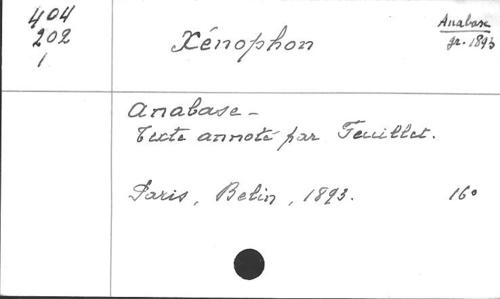 404
202
1
Xénophon
Anabase
gr. 1893
Anabase -
Texte annoté par Feuillet.
Paris, Belin, 1893. 16°